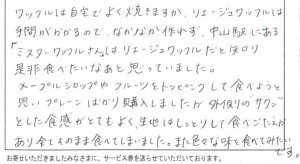 ワッフルは自宅でよく焼きますが、リエージュワッフルは
手間がかかるので、なかなか作れず、中山駅にある
「ミスターワッフルさん」はリエージュワッフルだと知り
是非食べたいなあと思っていました。
メープルシロップやフルーツをトッピングして食べようと
思いプレーンばかり購入しましたが外側のサクッ
とした食感がとてもよく、生地はしっとりして食べごたえが
あり全てそのまま食べてしまいました。また色々な味を食べてみたい
です。
お寄せいただきましたみなさまに、サービス券を送らせていただいております。